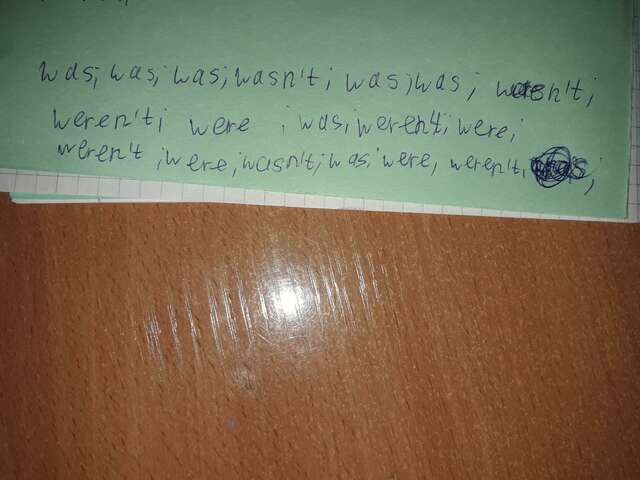 was; was; was; wasn't; was; was; weren't;
weren't; were ; was; weren't; were;
weren't; were; wasn't; was; were, weren't, ;